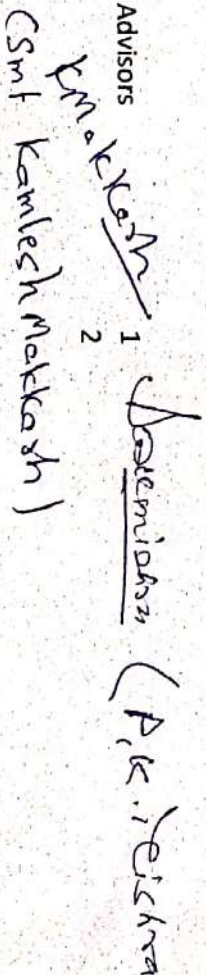 Advisors
1 (P.K.
2
KMakkash
(Smt Kamlesh Makkash)